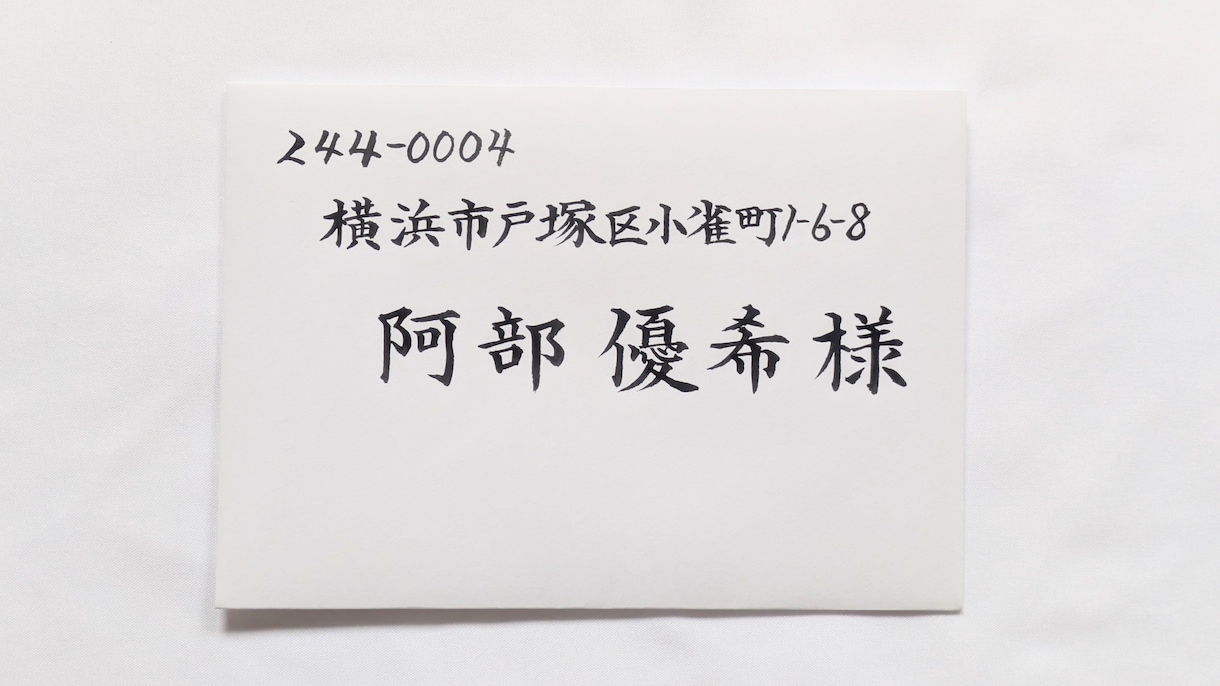 244-0004
横浜市戸塚区小雀町1-6-8
阿部 優希様